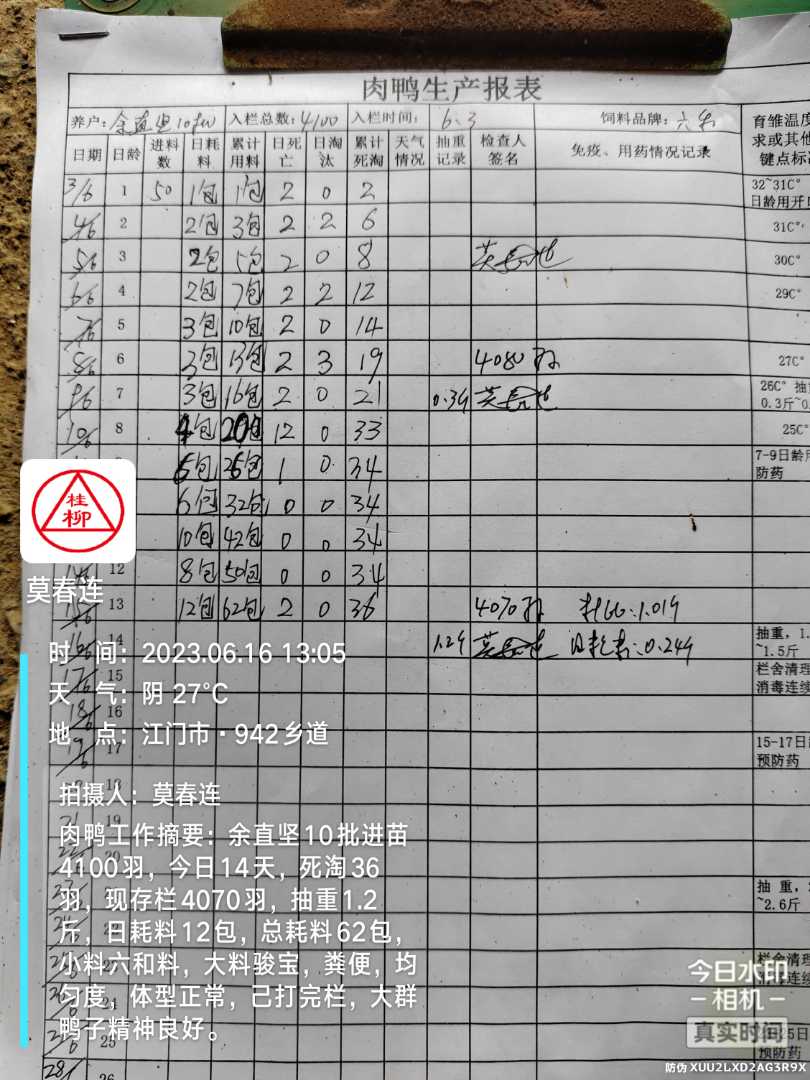 肉鸭生产报表
养户: 余直坚10批 入栏总数: 4100 入栏时间: 6.3 饲料品牌: 六和 育雏温度
日期 日龄 进料数 日耗料 累计用料 日死亡 日淘汰 累计死淘 天气情况 抽重记录 检查人签名 免疫、用药情况记录 求或其他 键点标
3/6 1 50 1包 1包 2 0 2 32~31C° 日龄用开
4/6 2 2包 3包 2 2 6 31C°
5/6 3 2包 5包 2 0 8 30C°
6/6 4 2包 7包 2 2 12 29C°
7/6 5 3包 10包 2 0 14
8/6 6 3包 13包 2 3 19 4080 27C°
9/6 7 3包 16包 2 0 21 26C° 抽 0.3斤~0.
10/6 8 4包 20包 12 0 33 25C°
26包 1 0 34 7-9日龄 防药
6包 32包 0 0 34
10包 42包 0 0 34
14/6 12 8包 50包 0 0 34
15/6 13 12包 62包 2 0 36 4070
16/6 14 抽重, 1. ~1.5斤
17/6 15 栏舍清理 消毒连续
18/6 16
19/6 17 15-17日 预防药
18
19
抽重, ~2.6斤
栏舍清理
25 25日 预防药
桂柳
莫春连
时 间: 2023.06.16 13:05
天 气: 阴 27°C
地 点: 江门市·942乡道
拍摄人: 莫春连
肉鸭工作摘要: 余直坚10批进苗
4100羽, 今日14天, 死淘36
羽, 现存栏4070羽, 抽重1.2
斤, 日耗料12包, 总耗料62包,
小料六和料, 大料骏宝, 粪便, 均
匀度, 体型正常, 已打完栏, 大群
鸭子精神良好。
今日水印
相机
真实时间
防伪 XUU2LXD2AG3R9X